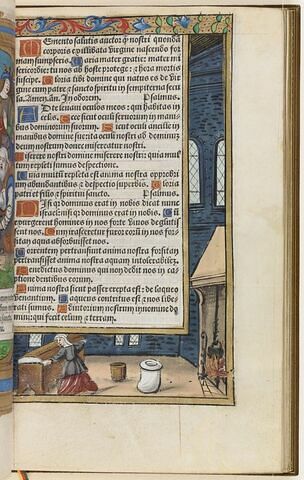 Memento salutis auctor q nostri quondã
corporis ex illibata virgine nascendo for
mam sumpseris. Maria mater gratie: mater mi
sericordie: tu nos ab hoste protege: et hora mortis
suscipe. Gloria tibi domine qui natus es de vir
gine cum patre et sancto spiritu in sempiterna secu
la. Amen. añ. In odorem. Psalmus.
AD te levavi oculos meos: qui habitas in
celis. Ecce sicut oculi servorum in mani-
bus dominorum suorum. Sicut oculi ancille in
manibus domine sue: ita oculi nostri ad dominũ
deum nostrum donec misereatur nostri.
Miserere nostri domine miserere nostri: quia mul
tum repleti sumus despectione.
Quia multũ repleta est anima nostra opprobri
um abundantibus et despectio superbis. Gloria
patri et filio et spiritui sancto. Psalmus.
Nisi quia dominus erat in nobis dicat nunc
israel: nisi q dominus erat in nobis. Cũ
exurgerent homines in nos forte vivos degluti
sent nos. Cum irasceretur furor eorũ in nos for
sitan aqua absorbuisset nos.
Torrentem pertransivit anima nostra forsitan
pertransisset anima nostra aquam intolerabilẽ.
Benedictus dominus qui non dedit nos in cap
tionem dentibus eorum.
Anima nostra sicut passer erepta est: de laqueo
venantium. Laqueus contritus est et nos libe
rati sumus. Adiutorium nostrum in nomine do
mini: qui fecit celum et terram.